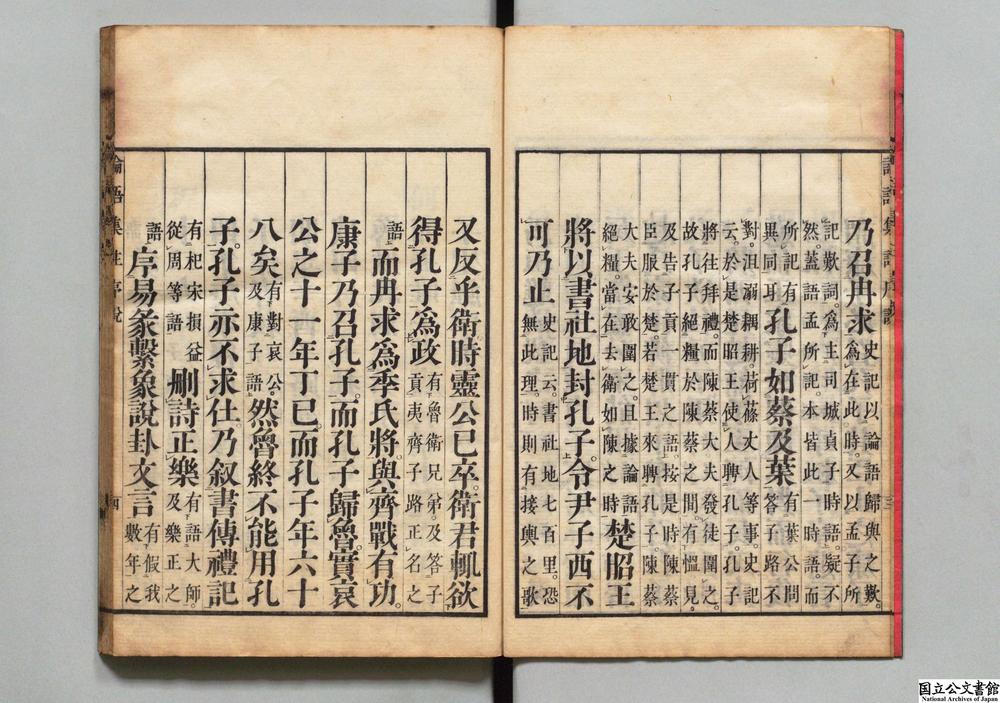 論語集註序說
三
乃召冉求史記以論語歸與之歎
為在此時又以孟子所
記歎詞為主司城貞子時語疑不
然蓋語孟所記本皆此一時語而
所記有
異同耳孔子如蔡及葉有葉公問
答子路不
對沮溺耦耕荷蓧丈人等事史記
云於是楚昭王使人聘孔子孔子
將往拜禮而陳蔡大夫發徒圍之
故孔子絕糧於陳蔡之間有慍見
及告子貢一貫之語按是時陳蔡
臣服於楚若楚王來聘孔子陳蔡
大夫安敢圍之且據論語
絕糧當在去衛如陳之時楚昭王
將以書社地封孔子令尹子西不
可乃止史記云書社地七百里恐
無此理時則有接輿之歌
又反乎衛時靈公已卒衛君輒欲
得孔子為政有魯衛兄弟及答子
貢夷齊子路正名之
語而冉求為季氏將與齊戰有功
康子乃召孔子而孔子歸魯實哀
公之十一年丁巳而孔子年六十
八矣有對哀公
及康子語然魯終不能用孔
子孔子亦不求仕乃叙書傳禮記
有杞宋損益
從周等語刪詩正樂有語大師
及樂正之
語序易彖繫象說卦文言有假我
數年之
論語集註序說
四
国立公文書館
National Archives of Japan